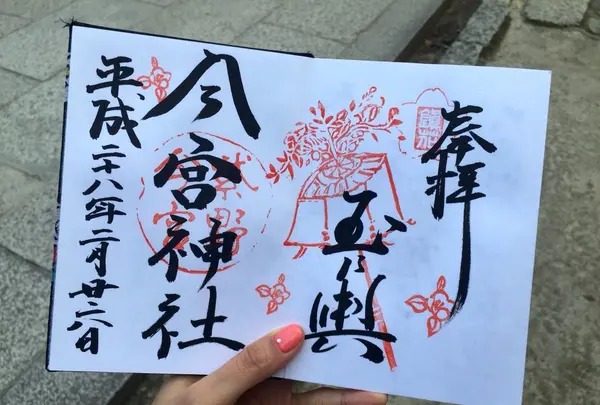 奉拝
玉の輿
今宮神社
平成二十八年二月廿六日